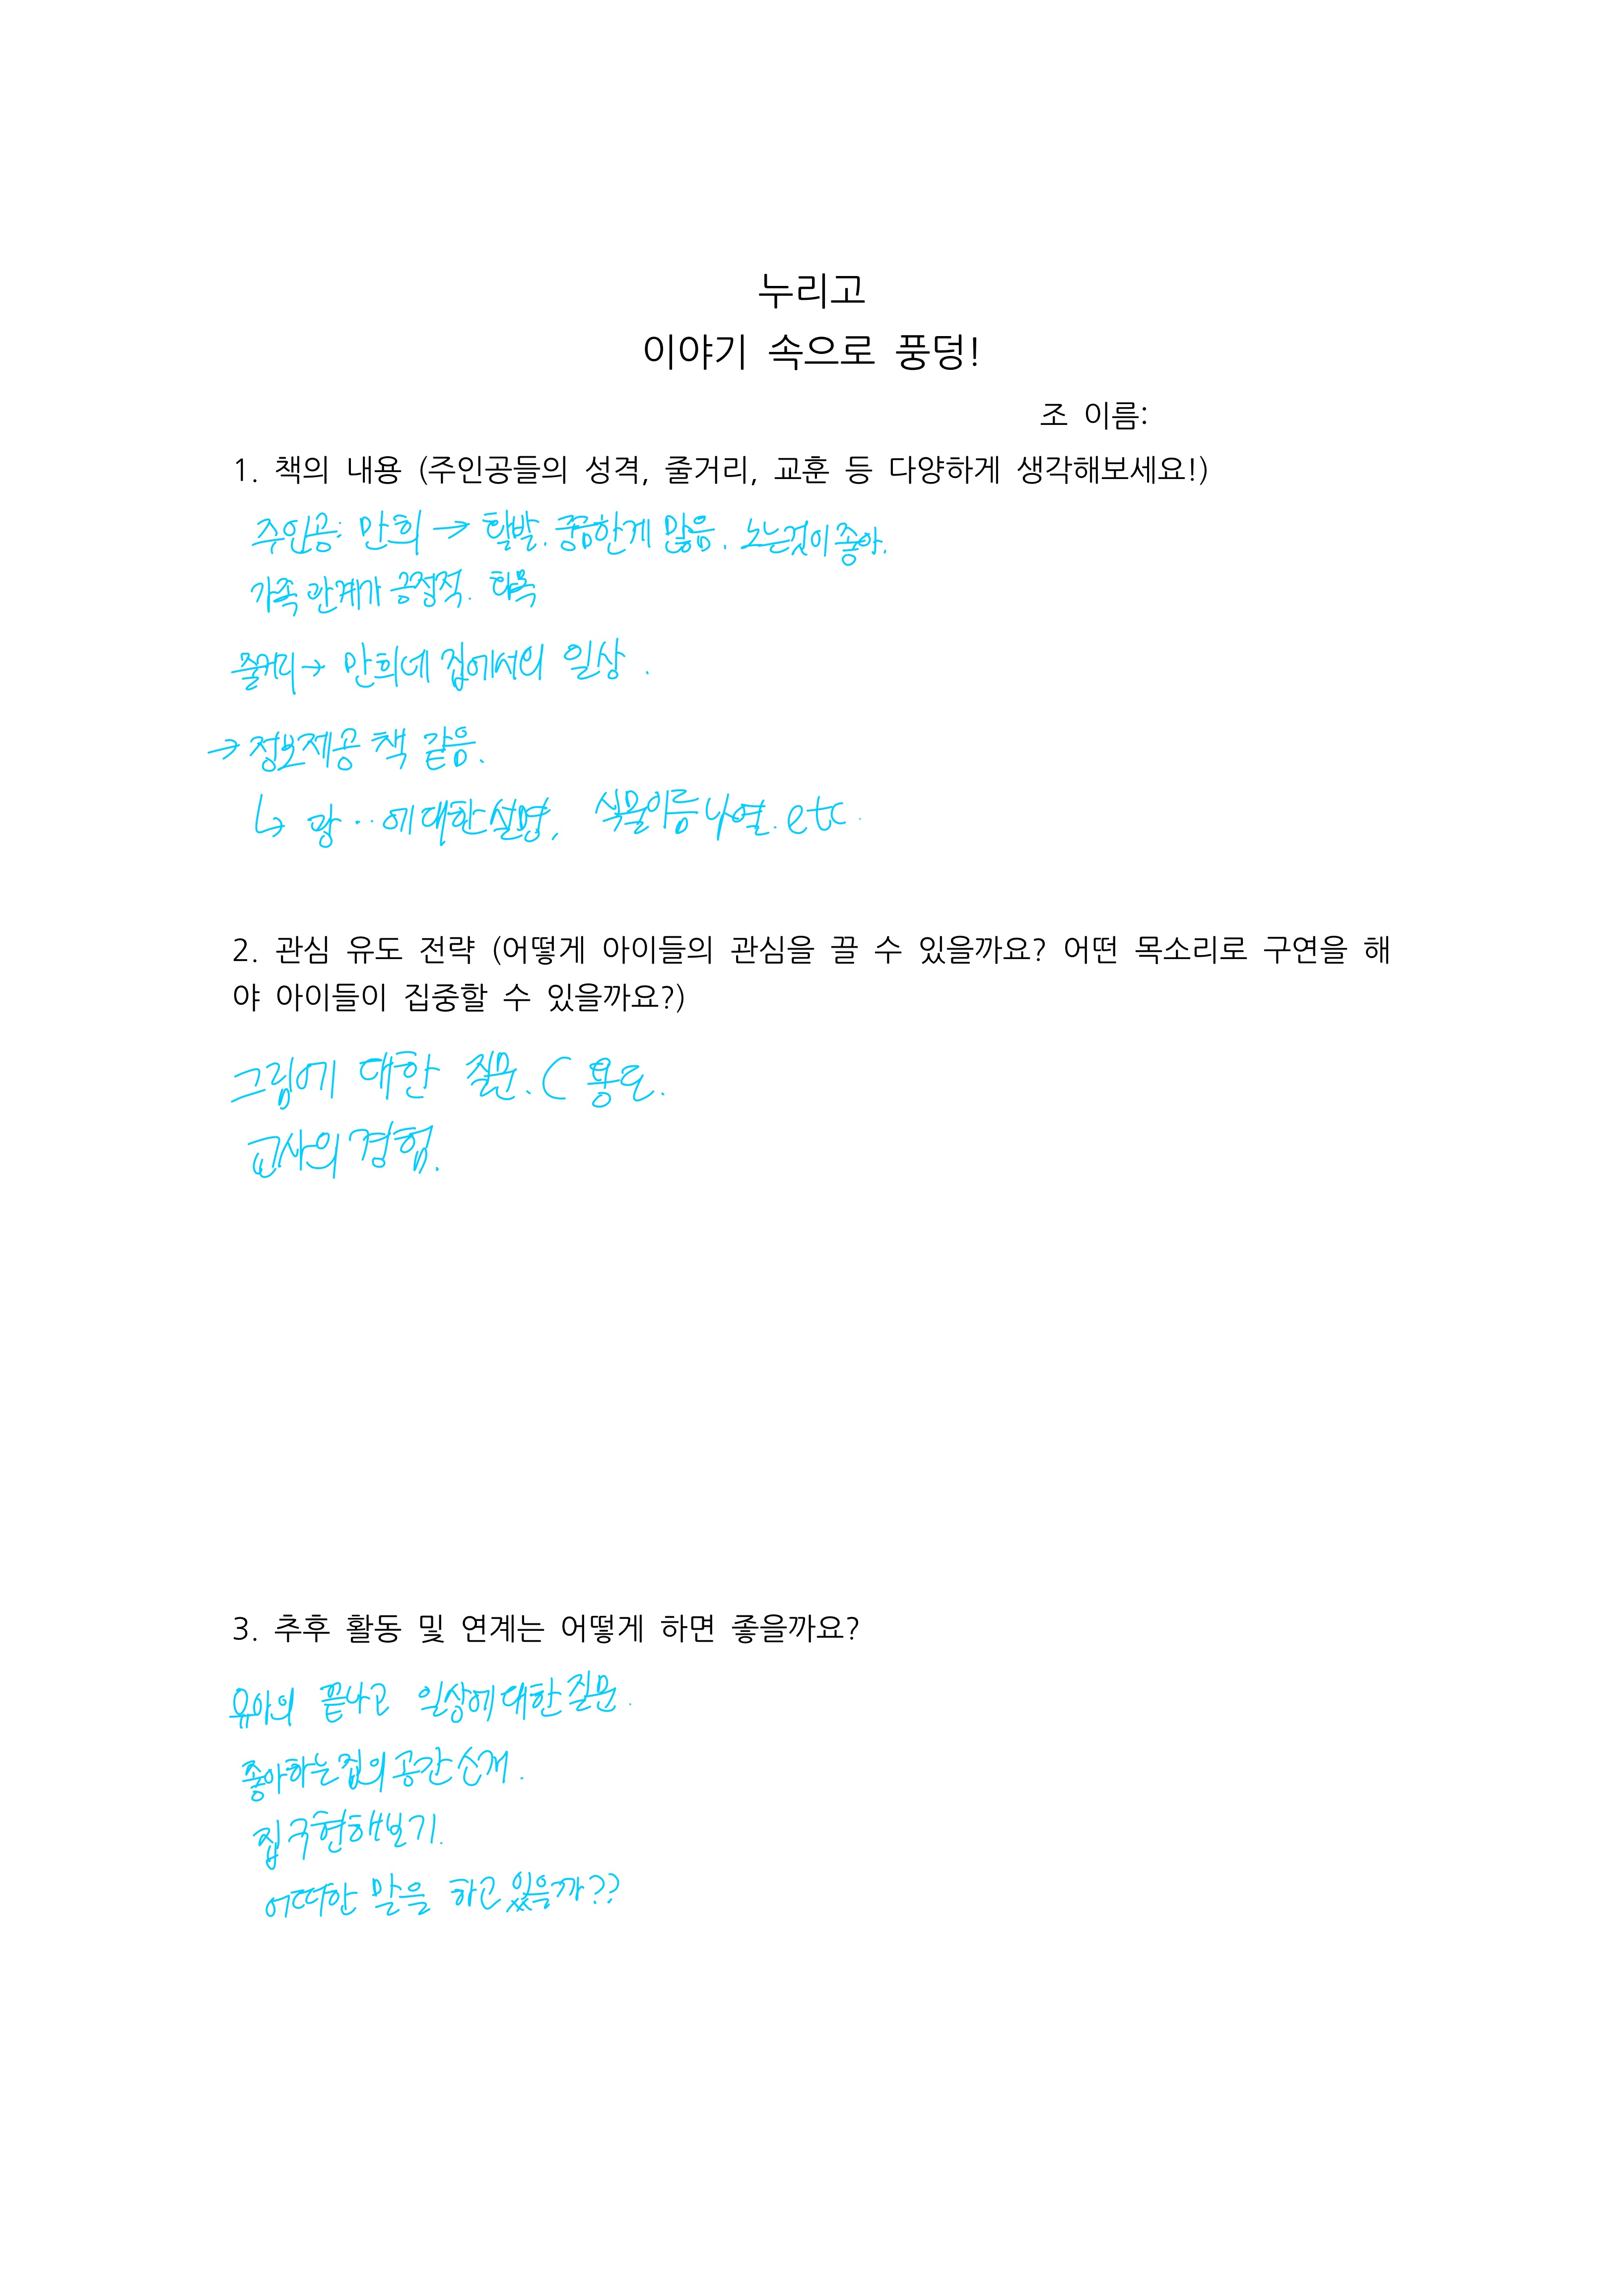 누리고
이야기 속으로 풍덩!
조 이름:
1. 책의 내용 (주인공들의 성격, 줄거리, 교훈 등 다양하게 생각해보세요!)
주인공: 만희 → 활발. 궁금한게 많음. 노는것이 좋아.
가족 관계가 긍정적. 화목
줄거리 → 만희네 집에서의 일상.
→ 정보제공 책 같음.
↳ 광..에 대한 설명, 식물이름 나열. etc.
2. 관심 유도 전략 (어떻게 아이들의 관심을 끌 수 있을까요? 어떤 목소리로 구연을 해
야 아이들이 집중할 수 있을까요?)
그림에 대한 질문. ( 용도.
교사의 경험.
3. 추후 활동 및 연계는 어떻게 하면 좋을까요?
유아의 끝나고 일상에 대한 질문.
좋아하는 집의 공간 소개.
집 구현해보기.
어떠한 말을 하고 있을까??